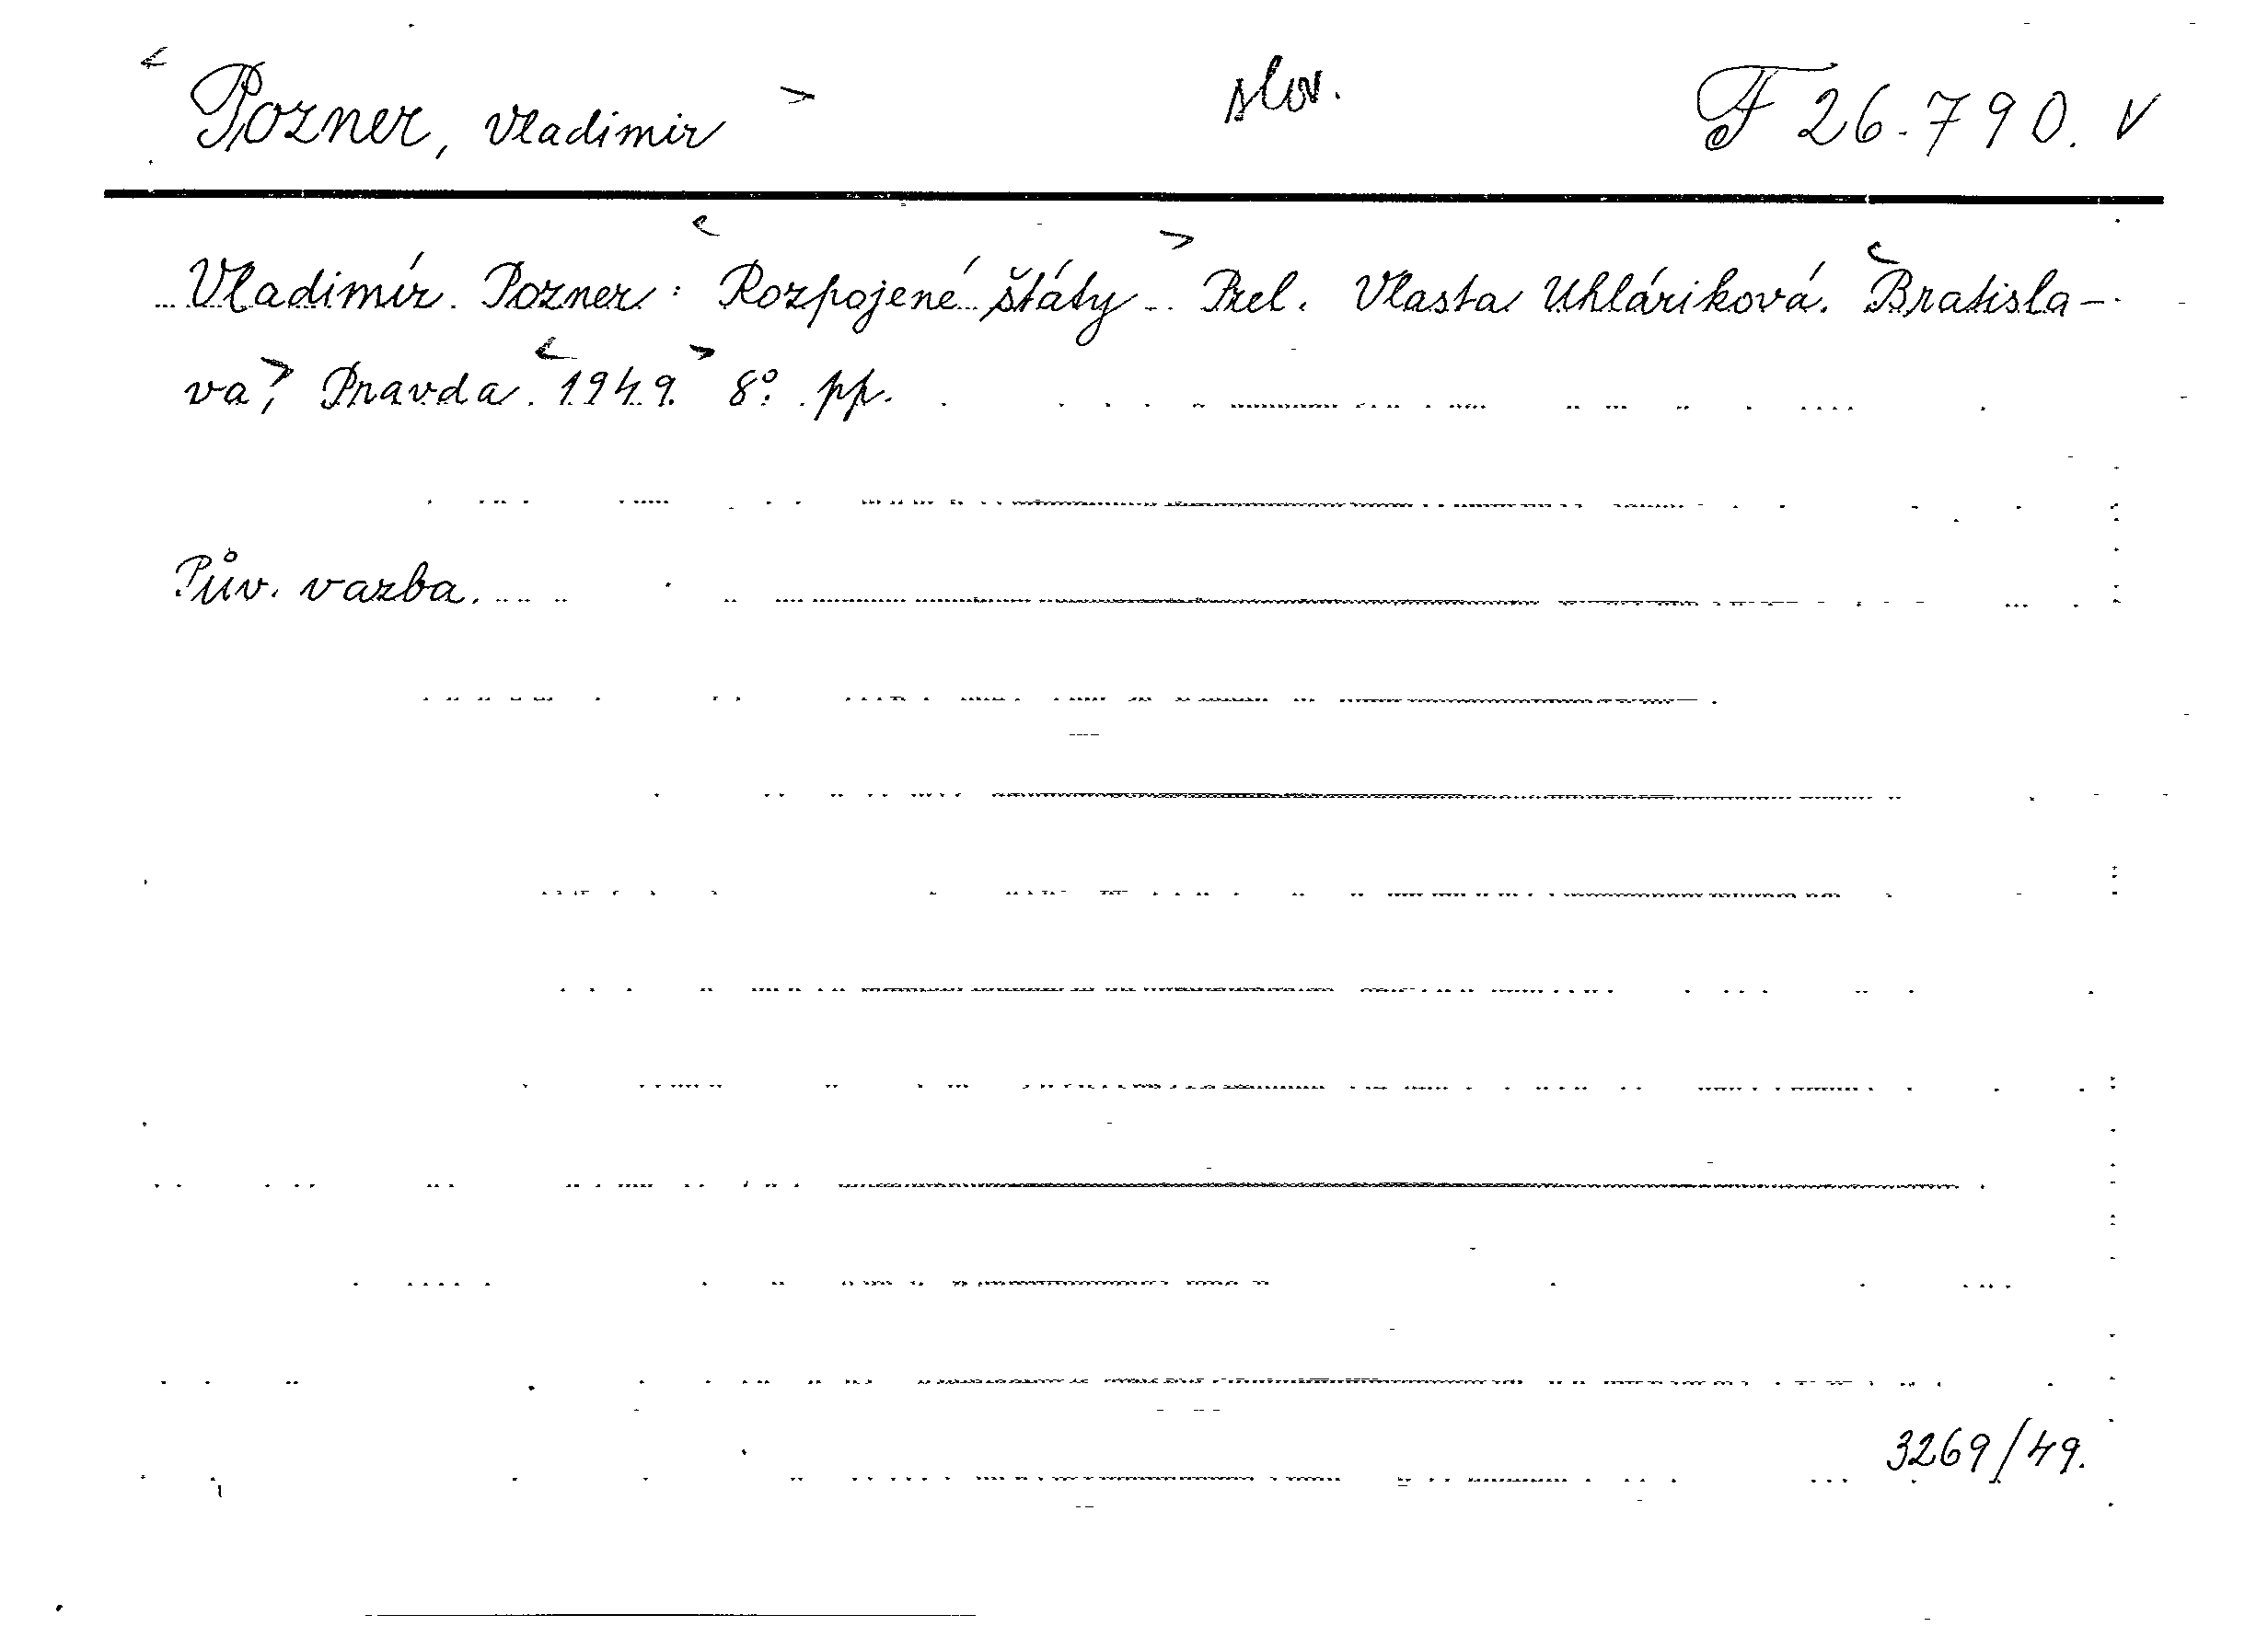 < Pozner, Vladimir > slov. F 26.790. v
Vladimír Pozner: <Rozpojené štáty> Prel. Vlasta Uhláriková. <Bratisla-
va>, Pravda. <1949.> 8° pp.
Pův. vazba.
3269/49.